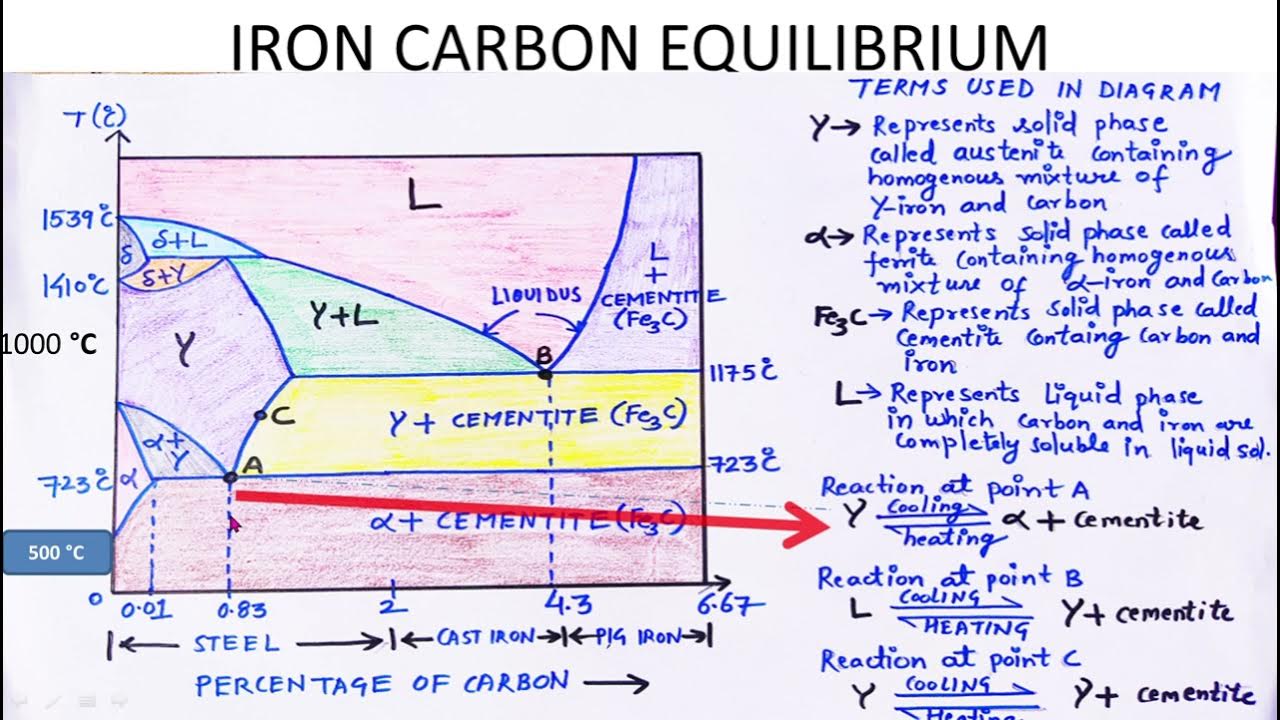 IRON CARBON EQUILIBRIUM
T(°C)
1539°C
1410°C
1000 °C
723°C
500 °C
0
δ
δ+L
δ+Y
Y
Y+L
L
LIQUIDUS
L
+
CEMENTITE
(Fe3C)
B
1175°C
C
Y + CEMENTITE (Fe3C)
α+
Y
α
A
723°C
α+ CEMENTITE (Fe3C)
0.01
0.83
2
4.3
6.67
STEEL
CAST IRON
PIG IRON
PERCENTAGE OF CARBON
TERMS USED IN DIAGRAM
Y→ Represents solid phase
called austenite containing
homogenous mixture of
Y-iron and carbon
α→ Represents solid phase called
ferrite containing homogenous
mixture of α-iron and carbon
Fe3C→ Represents solid phase called
cementite containg carbon and
iron
L→ Represents Liquid phase
in which carbon and iron are
completely soluble in liquid sol.
Reaction at point A
Y cooling heating α + cementite
Reaction at point B
L COOLING HEATING Y+ cementite
Reaction at point C
Y COOLING Heating Y+ cementite